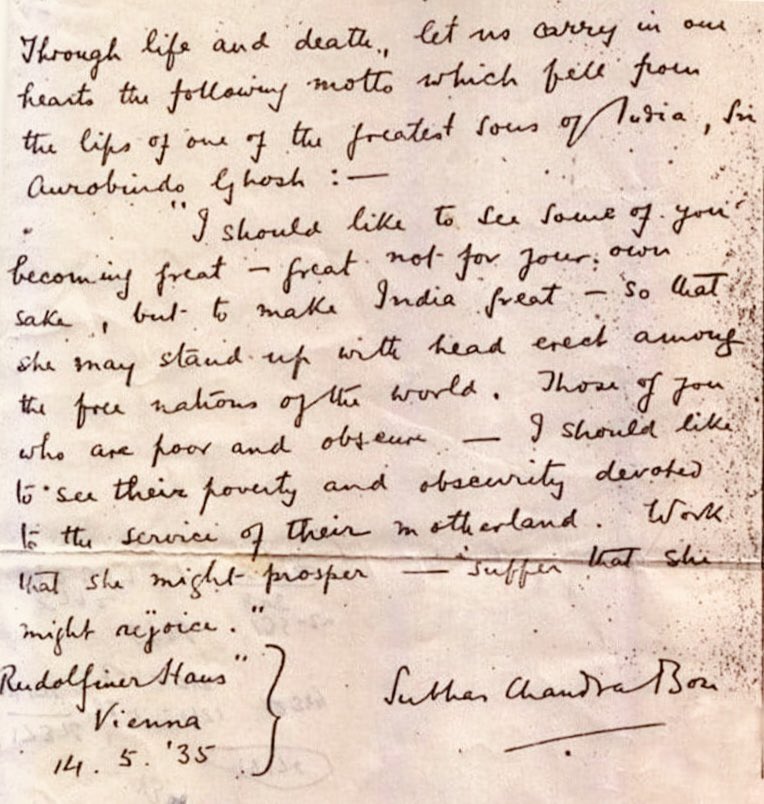 Through life and death, let us carry in our
hearts the following motto which fell from
the lips of one of the greatest sons of India, Sri
Aurobindo Ghosh :—
"I should like to see some of you
becoming great — great not for your own
sake, but to make India great — so that
she may stand up with head erect among
the free nations of the world. Those of you
who are poor and obscure — I should like
to see their poverty and obscurity devoted
to the service of their motherland. Work
that she might prosper — suffer that she
might rejoice."
Rudolfiner Haus"
Vienna
14. 5. '35
Subhas Chandra Bose